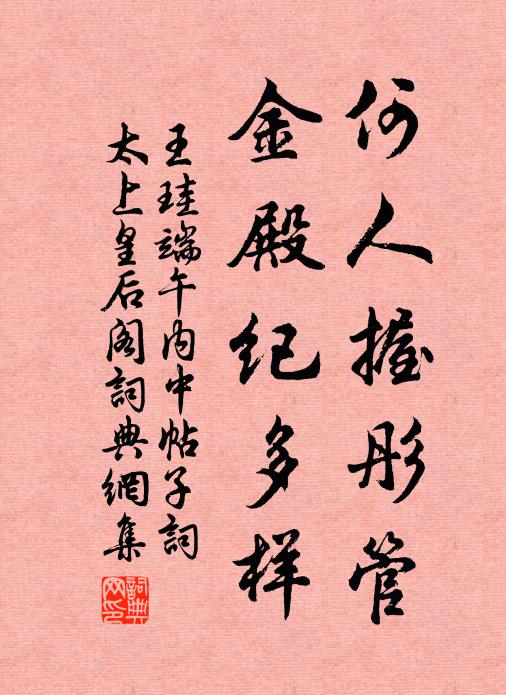 何人握彤管
金殿纪多样
王珪端午内中帖子詞
太上皇后阁詞典網集
詞典网印